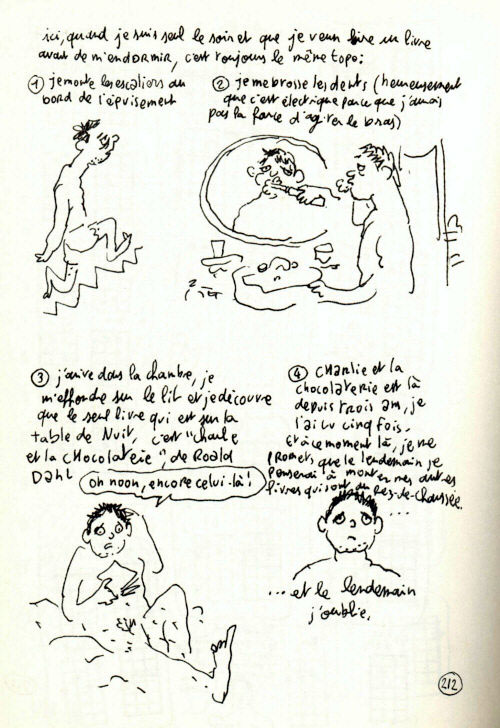 ici, quand je suis seul le soir et que je veux lire un livre
avant de m'endormir, c'est toujours le même topo:
① je monte les escaliers au
bord de l'épuisement
② je me brosse les dents (heureusement
que c'est électrique parce que j'aurais
pas la force d'agiter le bras)
③ j'arrive dans la chambre, je
m'effondre sur le lit et je découvre
que le seul livre qui est sur la
table de nuit, c'est "charlie
et la chocolaterie", de Roald
Dahl
oh noon, encore celui-là!
④ charlie et la
chocolaterie est là
depuis trois ans, je
l'ai lu cinq fois.
Et à ce moment là, je me
promets que le lendemain je
penserai à monter mes autres
livres qui sont au rez-de-chaussée.
...
...et le lendemain
j'oublie.
212